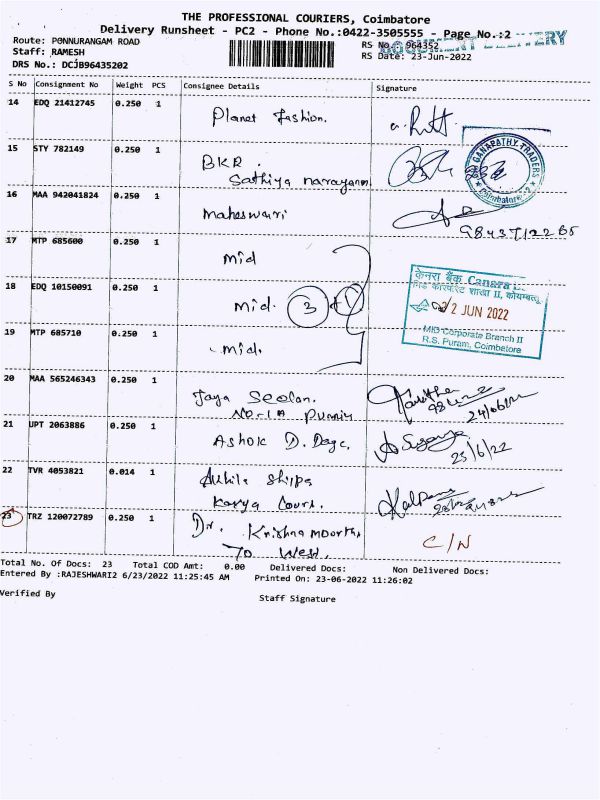 THE PROFESSIONAL COURIERS, Coimbatore
Delivery Runsheet - PC2 - Phone No.:0422-3505555 - Page No.:2
DOCUMENT DELIVERY
Route: PONNURANGAM ROAD
RS No. 964352
Staff: RAMESH
RS Date: 23-Jun-2022
DRS No.: DCJB96435202
S No Consignment No Weight PCS Consignee Details Signature
14 EDQ 21412745 0.250 1 Planet Fashion.
15 STY 782149 0.250 1 BKR.
Sathiya narayanan
GANAPATHY TRADERS
Coimbatore-2
16 MAA 942041824 0.250 1 Maheswari
17 MTP 685600 0.250 1 Mid
18 EDQ 10150091 0.250 1 Mid. 3
केनरा बैंक Canara
शाखा II, कोयम्बत्तूर
2 JUN 2022
MID Corporate Branch II
R.S. Puram, Coimbatore
19 MTP 685710 0.250 1 Mid.
20 MAA 565246343 0.250 1 Jaya Seelan.
24/06/22
21 UPT 2063886 0.250 1 Ashok D.
23/6/22
22 TVR 4053821 0.014 1 Akhila Shilpa
Court.
Kalpana
23 TRZ 120072789 0.250 1 Dr. Krishna moorthi
70 West.
C/N
Total No. Of Docs: 23 Total COD Amt: 0.00 Delivered Docs: Non Delivered Docs:
Entered By :RAJESHWARI2 6/23/2022 11:25:45 AM Printed On: 23-06-2022 11:26:02
Verified By Staff Signature